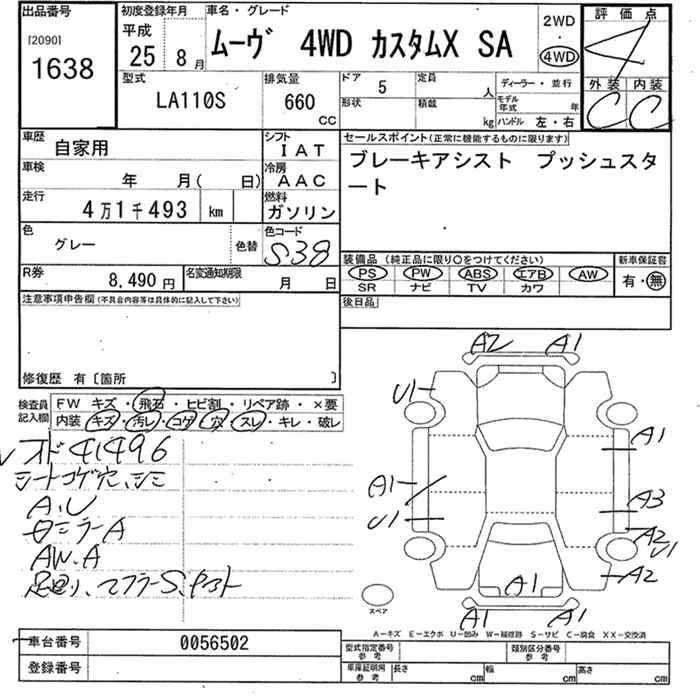 出品番号
[2090]
1638
初度登録年月
平成
25 8 月
車名・グレード
ムーヴ 4WD カスタムX SA
2WD
・
4WD
評価点
4
外装 内装
C C
型式
LA110S
排気量
660
CC
ドア 5
形状
定員 人
積載 kg
ディーラー・並行
モデル年式 年
ハンドル 左・右
車歴
自家用
シフト
IAT
車検
年 月( 日)
冷房
AAC
走行
4万1千493 km
燃料
ガソリン
色
グレー
色替
色コード
S38
R券
8,490円
名変通知期限
月 日
セールスポイント(正常に機能するものに限ります)
ブレーキアシスト プッシュスタ
ート
装備品(純正品に限り○をつけてください)
PS PW ABS エアB AW
SR ナビ TV カワ
新車保証書
有・無
後日品
注意事項申告欄(不具合内容等は具体的に記入して下さい)
修復歴 有〔箇所 〕
検査員
記入欄
FW キズ・飛石・ヒビ割・リペア跡・×要
内装 キズ・汚レ・コゲ・穴・スレ・キレ・破レ
41496
シートコゲ穴、シミ
A.U
ミラーA
AW.A
足回り、マフラーS.
A2 A1
U1
A1
A1
A3
U1
A2
U1
A2
A1
A1 A1
スペア
A−キズ E−エクボ U−凹み W−補修跡 S−サビ C−腐食 XX−交換済
車台番号 0056502
登録番号
型式指定番号
参考
類別区分番号
参考
車庫証明用
参考
長さ cm
幅 cm
高さ cm